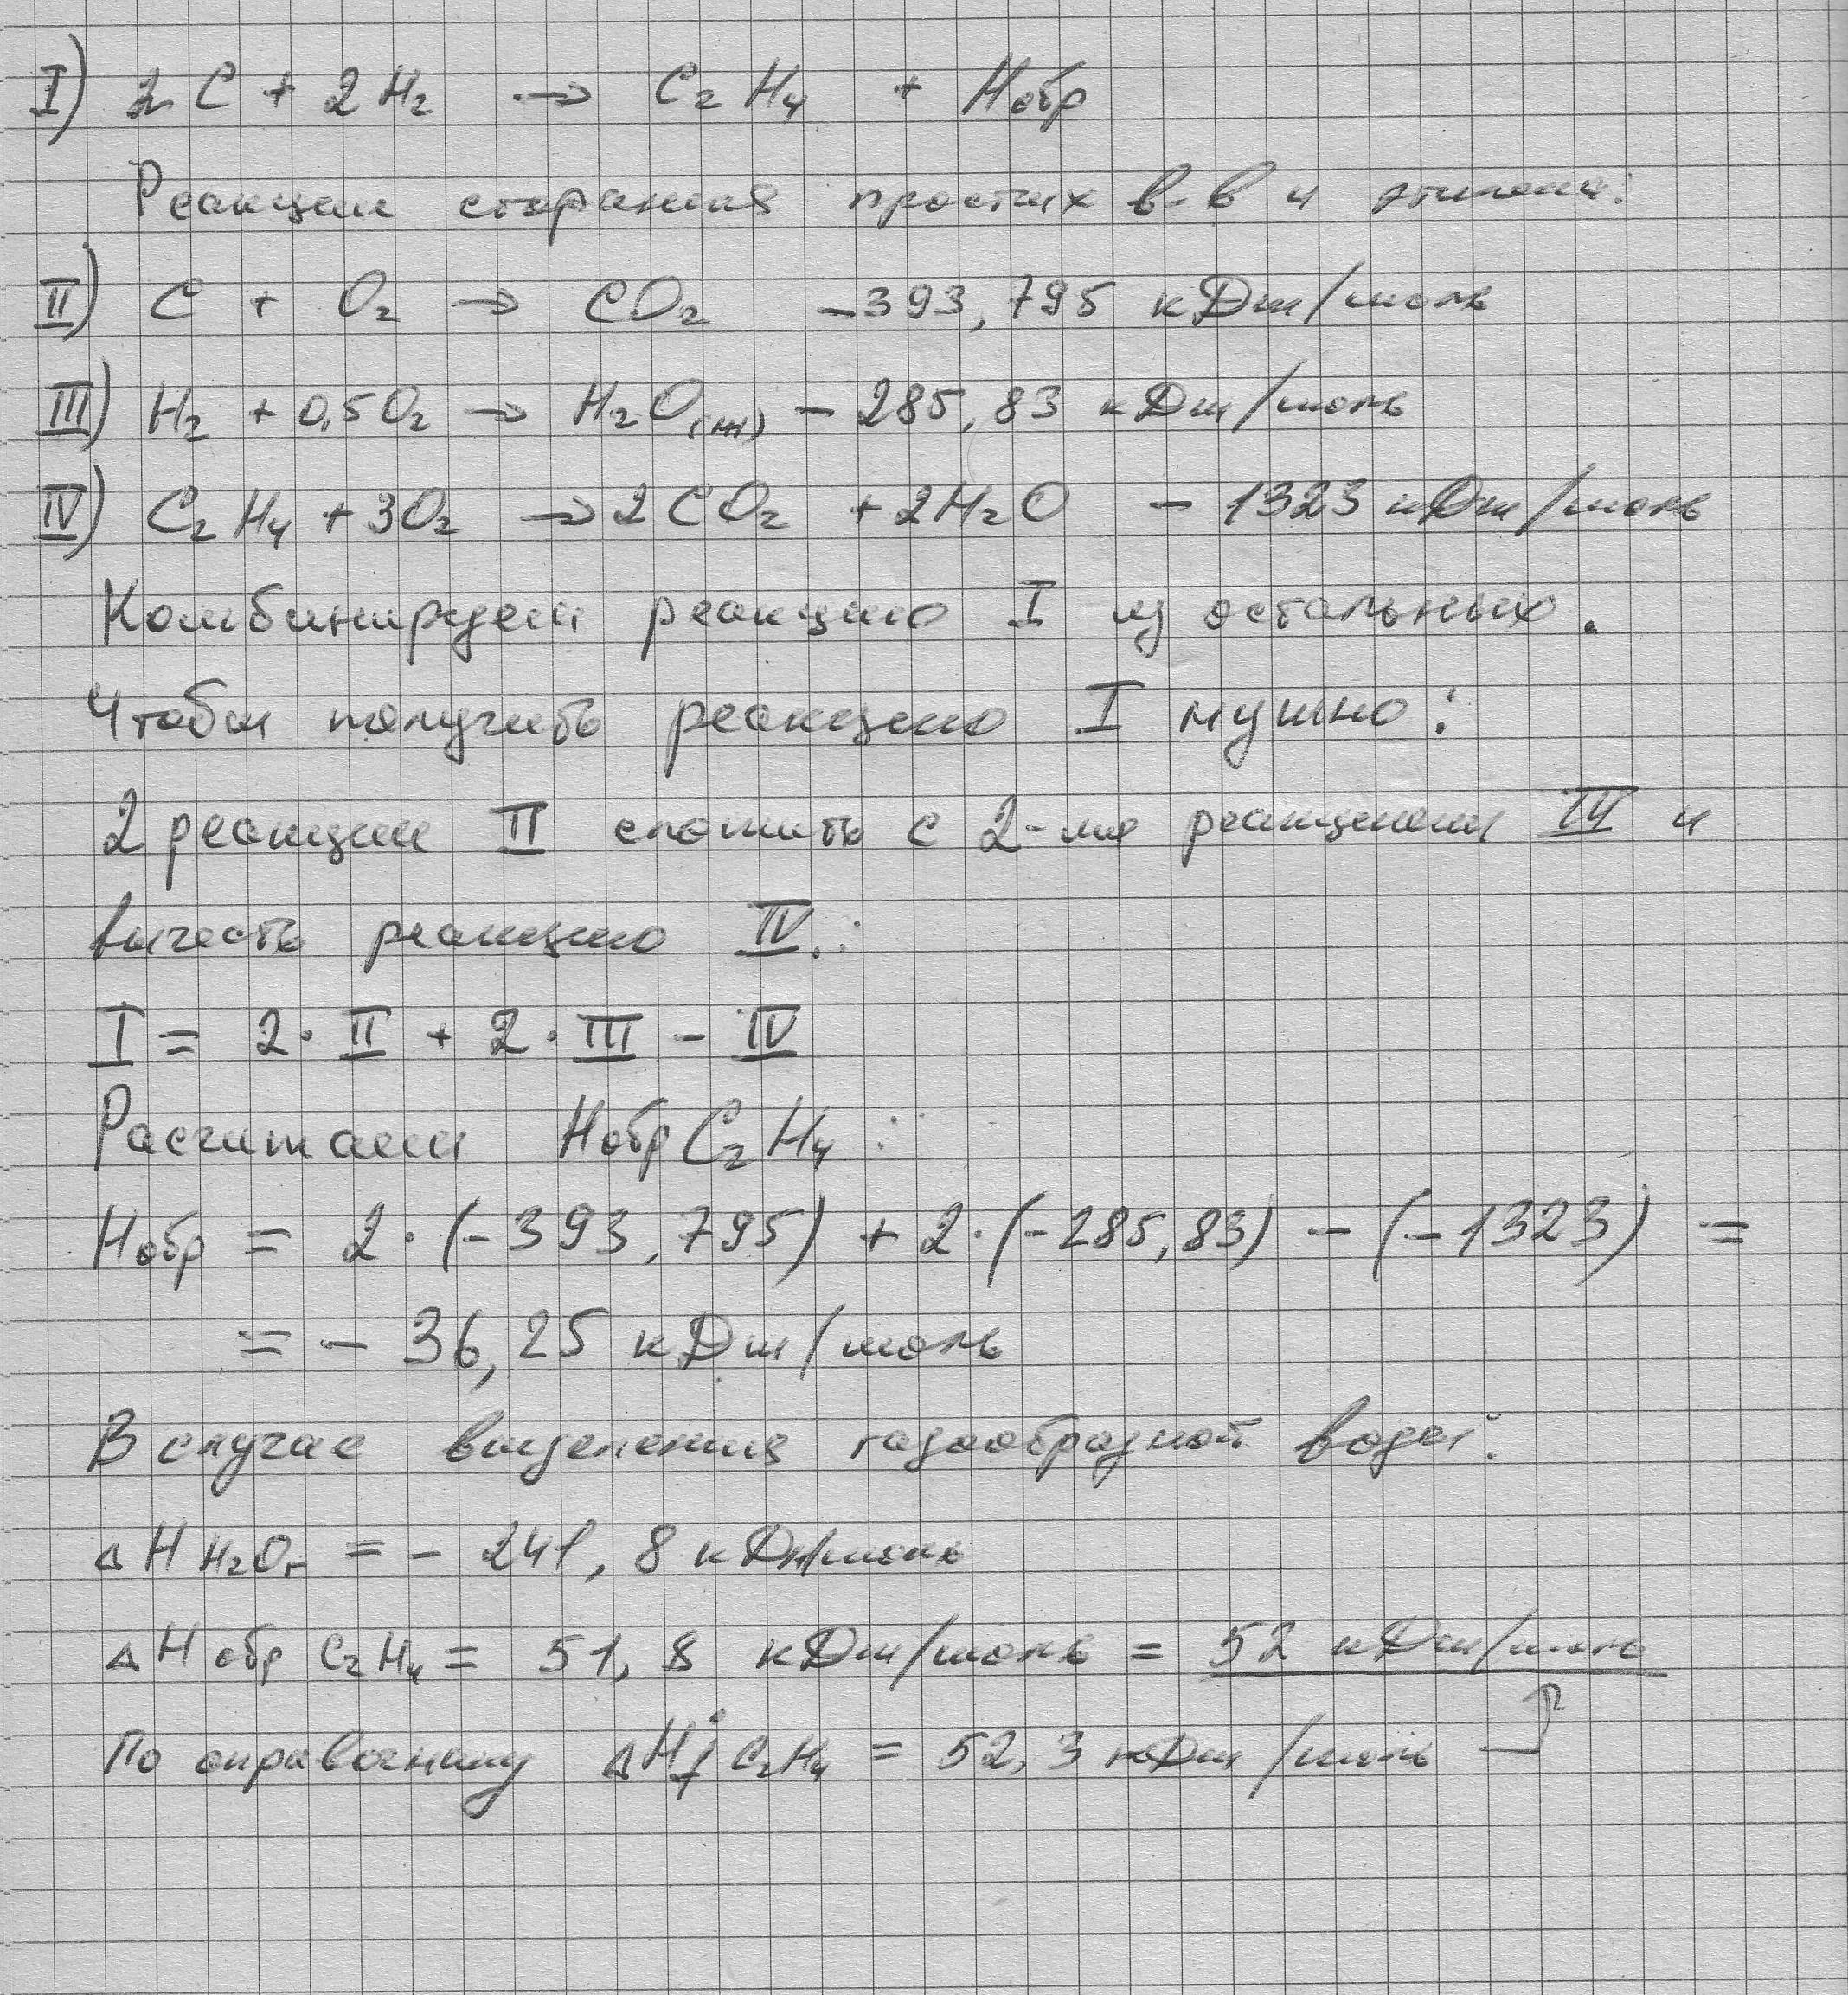 I) 2C + 2H₂ → C₂H₄ + Hобр
Реакции сгорания простых в-в и этилена:
II) C + O₂ → CO₂ -393,795 кДж/моль
III) H₂ + 0,5O₂ → H₂O(ж) - 285,83 кДж/моль
IV) C₂H₄ + 3O₂ → 2CO₂ + 2H₂O - 1323 кДж/моль
Комбинируем реакцию I из остальных.
Чтобы получить реакцию I нужно:
2 реакции II сложить с 2-мя реакциями III и
вычесть реакцию IV.:
I = 2·II + 2·III - IV
Расчитаем Hобр C₂H₄:
Hобр = 2·(-393,795) + 2·(-285,83) - (-1323) =
= - 36,25 кДж/моль
В случае выделения газообразной воды:
ΔH H₂Oг = - 241,8 кДж/моль
ΔHобр C₂H₄ = 51,8 кДж/моль = 52 кДж/моль
По справочнику ΔH°f C₂H₄ = 52,3 кДж/моль